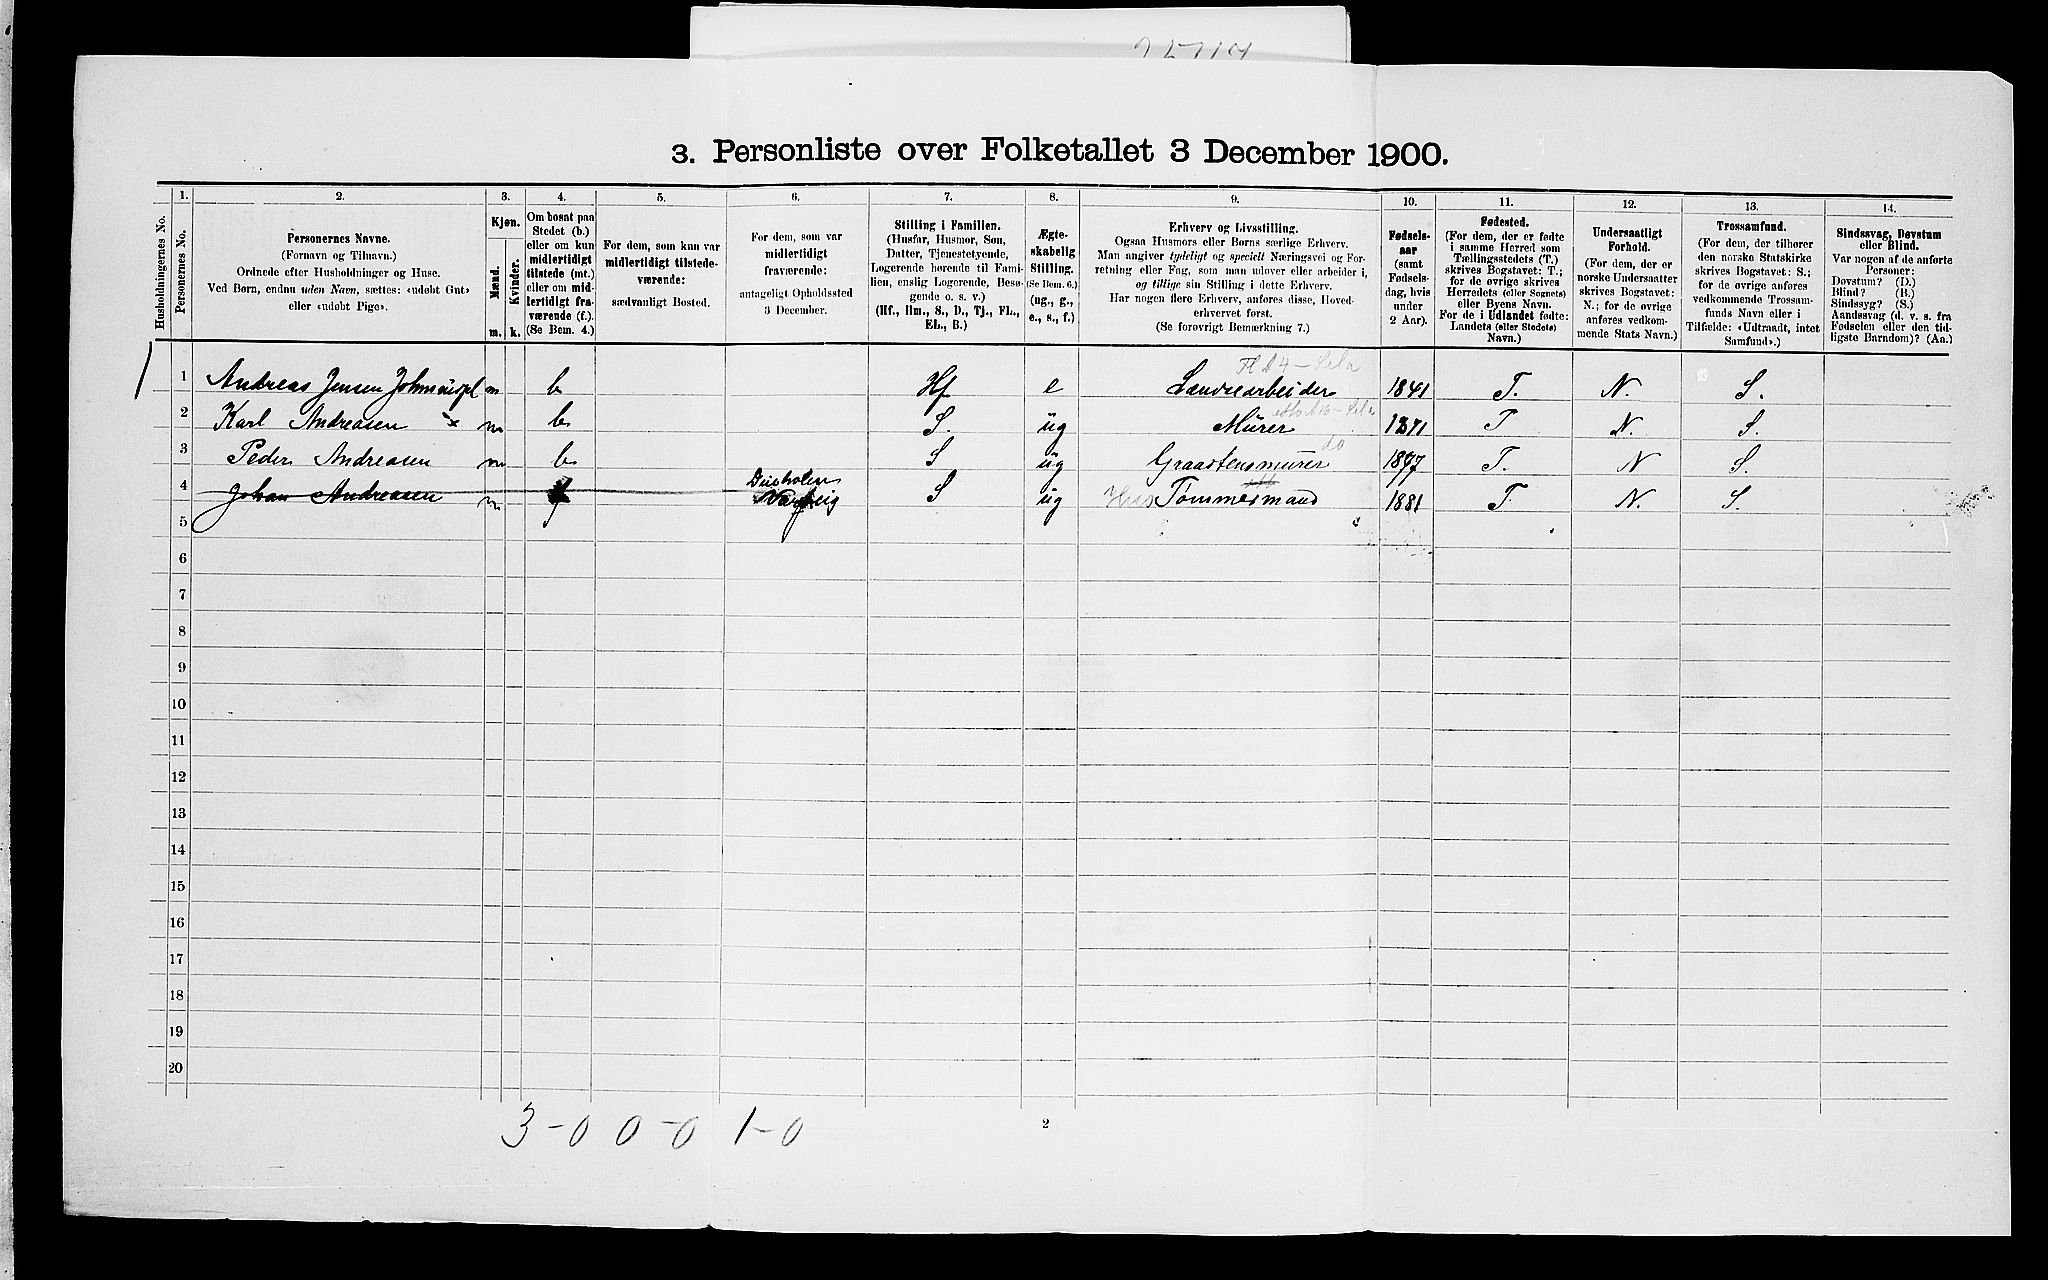 3. Personliste over Folketallet 3 December 1900.
Husholdningernes No.
1.
Personernes No.
2.
Personernes Navne.
(Fornavn og Tilnavn.)
Ordnede efter Husholdninger og Huse.
Ved Børn, endnu uden Navn, sættes: «udøbt Gut»
eller «udøbt Pige».
3.
Kjøn.
Mænd.
Kvinder.
m.
k.
4.
Om bosat paa
Stedet (b.)
eller om kun
midlertidigt
tilstede (mt.)
eller om mid-
lertidigt fra-
værende (f.).
(Se Bem. 4.)
5.
For dem, som kun var
midlertidigt tilstede-
værende:
sædvanligt Bosted.
6.
For dem, som var
midlertidigt
fraværende:
antageligt Opholdssted
3 December.
7.
Stilling i Familien.
(Husfar, Husmor, Søn,
Datter, Tjenestetyende,
Logerende hørende til Fami-
lien, enslig Logerende, Besø-
gende o. s. v.)
(Hf., Hm., S., D., Tj., FL.,
EL., B.)
8.
Ægte-
skabelig
Stilling.
(Se Bem. 6.)
(ug., g.,
e., s., f.)
9.
Erhverv og Livsstilling.
Ogsaa Husmors eller Børns særlige Erhverv.
Man angiver tydeligt og specielt Næringsvei og For-
retning eller Fag, som man udover eller arbeider i,
og tillige sin Stilling i dette Erhverv.
Har nogen flere Erhverv, anføres disse, Hoved-
erhvervet først.
(Se forøvrigt Bemærkning 7.)
10.
Fødsels-
aar
(samt
Fødsels-
dag, hvis
under
2 Aar).
11.
Fødested.
(For dem, der er fødte
i samme Herred som
Tællingsstedets (T.)
skrives Bogstavet: T.;
for de øvrige skrives
Herredets (eller Sognets)
eller Byens Navn.
For de i Udlandet fødte:
Landets (eller Stedets)
Navn.)
12.
Undersaatligt
Forhold.
(For dem, der er
norske Undersaatter
skrives Bogstavet:
N.; for de øvrige
anføres vedkom-
mende Stats Navn.)
13.
Trossamfund.
(For dem, der tilhører
den norske Statskirke
skrives Bogstavet: S.;
for de øvrige anføres
vedkommende Trossam-
funds Navn eller i
Tilfælde: «Udtraadt, intet
Samfund».)
14.
Sindssvag, Døvstum
eller Blind.
Var nogen af de anførte
Personer:
Døvstum? (D.)
Blind? (B.)
Sindssyg? (S.)
Aandssvag (d. v. s. fra
Fødselen eller den tid-
ligste Barndom)? (Aa.)
1 1 Andreas Jensen m b Hf e 1841 T. N. S.
2 Karl Andreasen x m b S. ug Murer 1871 T N. S.
do
3 Peder Andreasen m b S ug Graastensmurer 1877 T. N S.
4 Johan Andreasen m f S ug Tømmermand 1881 T. N. S.
5
6
7
8
9
10
11
12
13
14
15
16
17
18
19
20
3-0 0-0 1-0
2